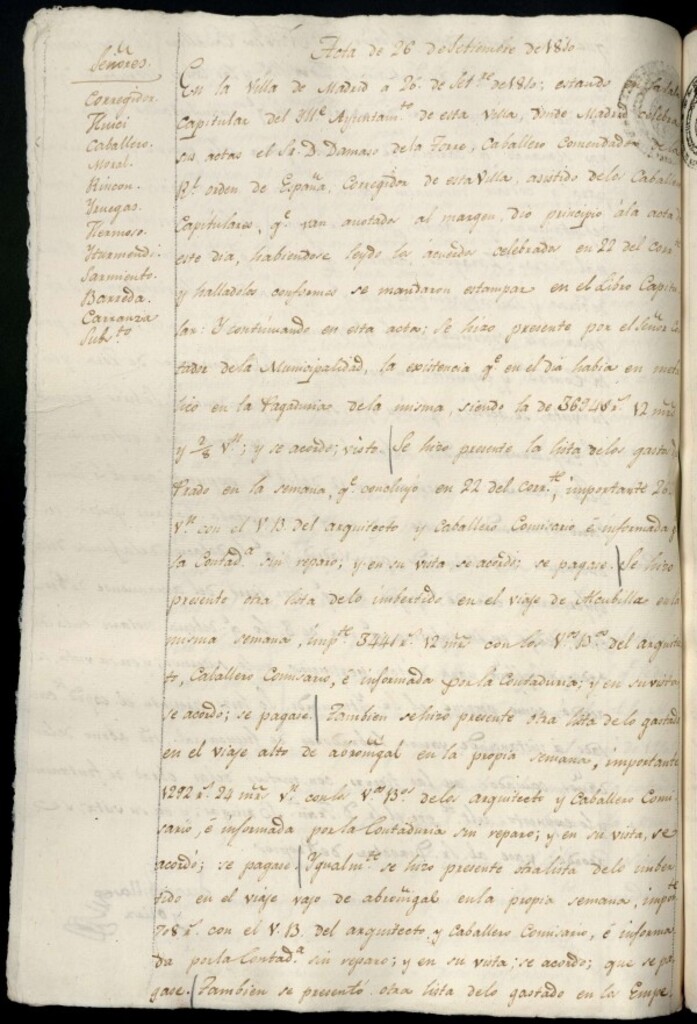 Acta de 26 de Setiembre de 1810
Señores.
Corregidor.
Caballero.
Moral.
Rincon.
Yruegas.
Hermoso.
Yturmendi.
Sarmiento.
Barreda.
Carranza
Subs.to
En la Villa de Madrid á 26 de Set.re de 1810; estando
Capitular del Ill.e Ayuntam.to de esta Villa, donde Madrid celebra
sus actas el Sr. D. Damaso de la Torre, Caballero Comendador de la
R.l orden de España, Corregidor de esta Villa, asistido de los Caball
Capitulares, q.e van anotados al margen, dio principio á la acta de
este dia, habiendose leydo los acuerdos celebrados en 22 del corr.te
y halladolos conformes se mandaron estampar en el Libro Capitu
lar: Y continuando en esta acta; Se hizo presente por el Señor Con
tador de la Municipalidad, la existencia q.e en el dia habia en meta
lico en la Pagaduria de la misma, siendo la de 36948 r.s 12 mrs
y 2/8 V.n; y se acordó; visto. Se hizo presente la lista de los gastos
Prado en la semana, q.e concluyó en 22 del corr.te, importante 26
V.n con el V.B. del arquitecto y Caballero Comisario, é informada p
la Contad.a sin reparo; y en su vista se acordó; se pagase. Se hizo
presente otra lista de lo imbertido en el viaje de Alcubilla en la
misma semana, imp.te 3441 r.s 12 mrs con los V.os B.os del arquitec
to, Caballero Comisario, é informada por la Contaduria; y en su vista
se acordó; se pagase. Tambien se hizo presente otra lista de lo gastado
en el viaje alto de abroñigal en la propia semana, importante
1292 r.s 24 mrs V.n con los V.os B.os de los arquitecto y Caballero Comi
sario, é informada por la Contaduria sin reparo; y en su vista, se
acordó; se pagase. Ygualm.te se hizo presente otra lista de lo imber
tido en el viaje vajo de abroñigal en la propia semana, imp.te
708 r.s con el V.B. del arquitecto y Caballero Comisario, é informa
da por la Contad.a sin reparo; y en su vista; se acordó; que se pa
gase. Tambien se presentó otra lista de lo gastado en los Empe